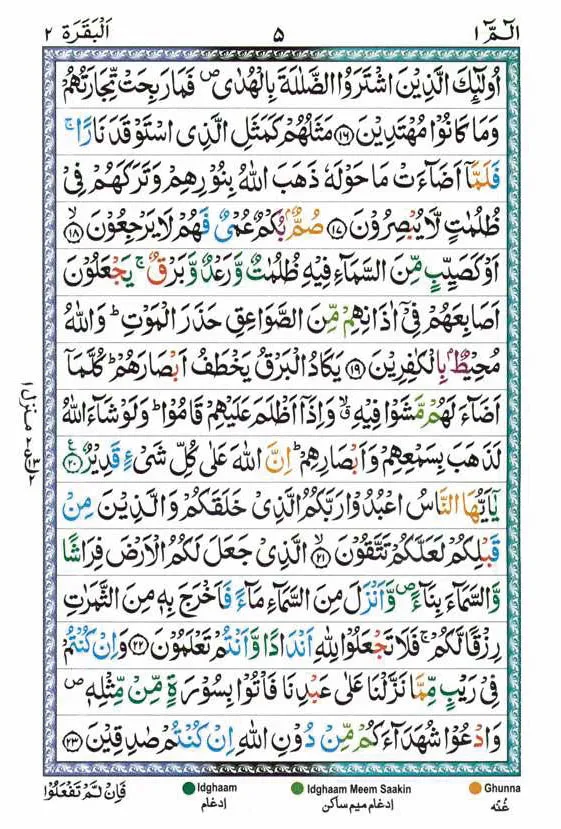 الٓمّٓ ١ ٥ اَلْبَقَرَة ٢
اُولٰٓئِكَ الَّذِيْنَ اشْتَرَوُا الضَّلٰلَةَ بِالْهُدٰى ۪ فَمَا رَبِحَتْ تِّجَارَتُهُمْ
وَمَا كَانُوْا مُهْتَدِيْنَ ﴿۱۶﴾ مَثَلُهُمْ كَمَثَلِ الَّذِى اسْتَوْقَدَ نَارًا ۚ
فَلَمَّآ اَضَآءَتْ مَا حَوْلَهٗ ذَهَبَ اللّٰهُ بِنُوْرِهِمْ وَتَرَكَهُمْ فِىْ
ظُلُمٰتٍ لَّا يُبْصِرُوْنَ ﴿۱۷﴾ صُمٌّۢ بُكْمٌ عُمْىٌ فَهُمْ لَا يَرْجِعُوْنَ ﴿۱۸﴾ۙ
اَوْ كَصَيِّبٍ مِّنَ السَّمَآءِ فِيْهِ ظُلُمٰتٌ وَّرَعْدٌ وَّبَرْقٌ ۚ يَجْعَلُوْنَ
اَصَابِعَهُمْ فِىْٓ اٰذَانِهِمْ مِّنَ الصَّوَاعِقِ حَذَرَ الْمَوْتِ ؕ وَاللّٰهُ
مُحِيْطٌۢ بِالْكٰفِرِيْنَ ﴿۱۹﴾ يَكَادُ الْبَرْقُ يَخْطَفُ اَبْصَارَهُمْ ؕ كُلَّمَآ
اَضَآءَ لَهُمْ مَّشَوْا فِيْهِ ۙ وَاِذَآ اَظْلَمَ عَلَيْهِمْ قَامُوْا ؕ وَلَوْ شَآءَ اللّٰهُ
لَذَهَبَ بِسَمْعِهِمْ وَاَبْصَارِهِمْ ؕ اِنَّ اللّٰهَ عَلٰى كُلِّ شَىْءٍ قَدِيْرٌ ﴿۲۰﴾ع
يٰٓاَيُّهَا النَّاسُ اعْبُدُوْا رَبَّكُمُ الَّذِىْ خَلَقَكُمْ وَالَّذِيْنَ مِنْ
قَبْلِكُمْ لَعَلَّكُمْ تَتَّقُوْنَ ﴿۲۱﴾ۙ الَّذِىْ جَعَلَ لَكُمُ الْاَرْضَ فِرَاشًا
وَّالسَّمَآءَ بِنَآءً ۪ وَّاَنْزَلَ مِنَ السَّمَآءِ مَآءً فَاَخْرَجَ بِهٖ مِنَ الثَّمَرٰتِ
رِزْقًا لَّكُمْ ۚ فَلَا تَجْعَلُوْا لِلّٰهِ اَنْدَادًا وَّاَنْتُمْ تَعْلَمُوْنَ ﴿۲۲﴾ وَاِنْ كُنْتُمْ
فِىْ رَيْبٍ مِّمَّا نَزَّلْنَا عَلٰى عَبْدِنَا فَاْتُوْا بِسُوْرَةٍ مِّنْ مِّثْلِهٖ ۪
وَادْعُوْا شُهَدَآءَكُمْ مِّنْ دُوْنِ اللّٰهِ اِنْ كُنْتُمْ صٰدِقِيْنَ ﴿۲۳﴾
منزل ١
ع ١٣ ٢ ٢
فَاِنْ لَّمْ تَفْعَلُوْا
Idghaam ادغام
Idghaam Meem Saakin ادغام ميم ساكن
Ghunna غُنّه